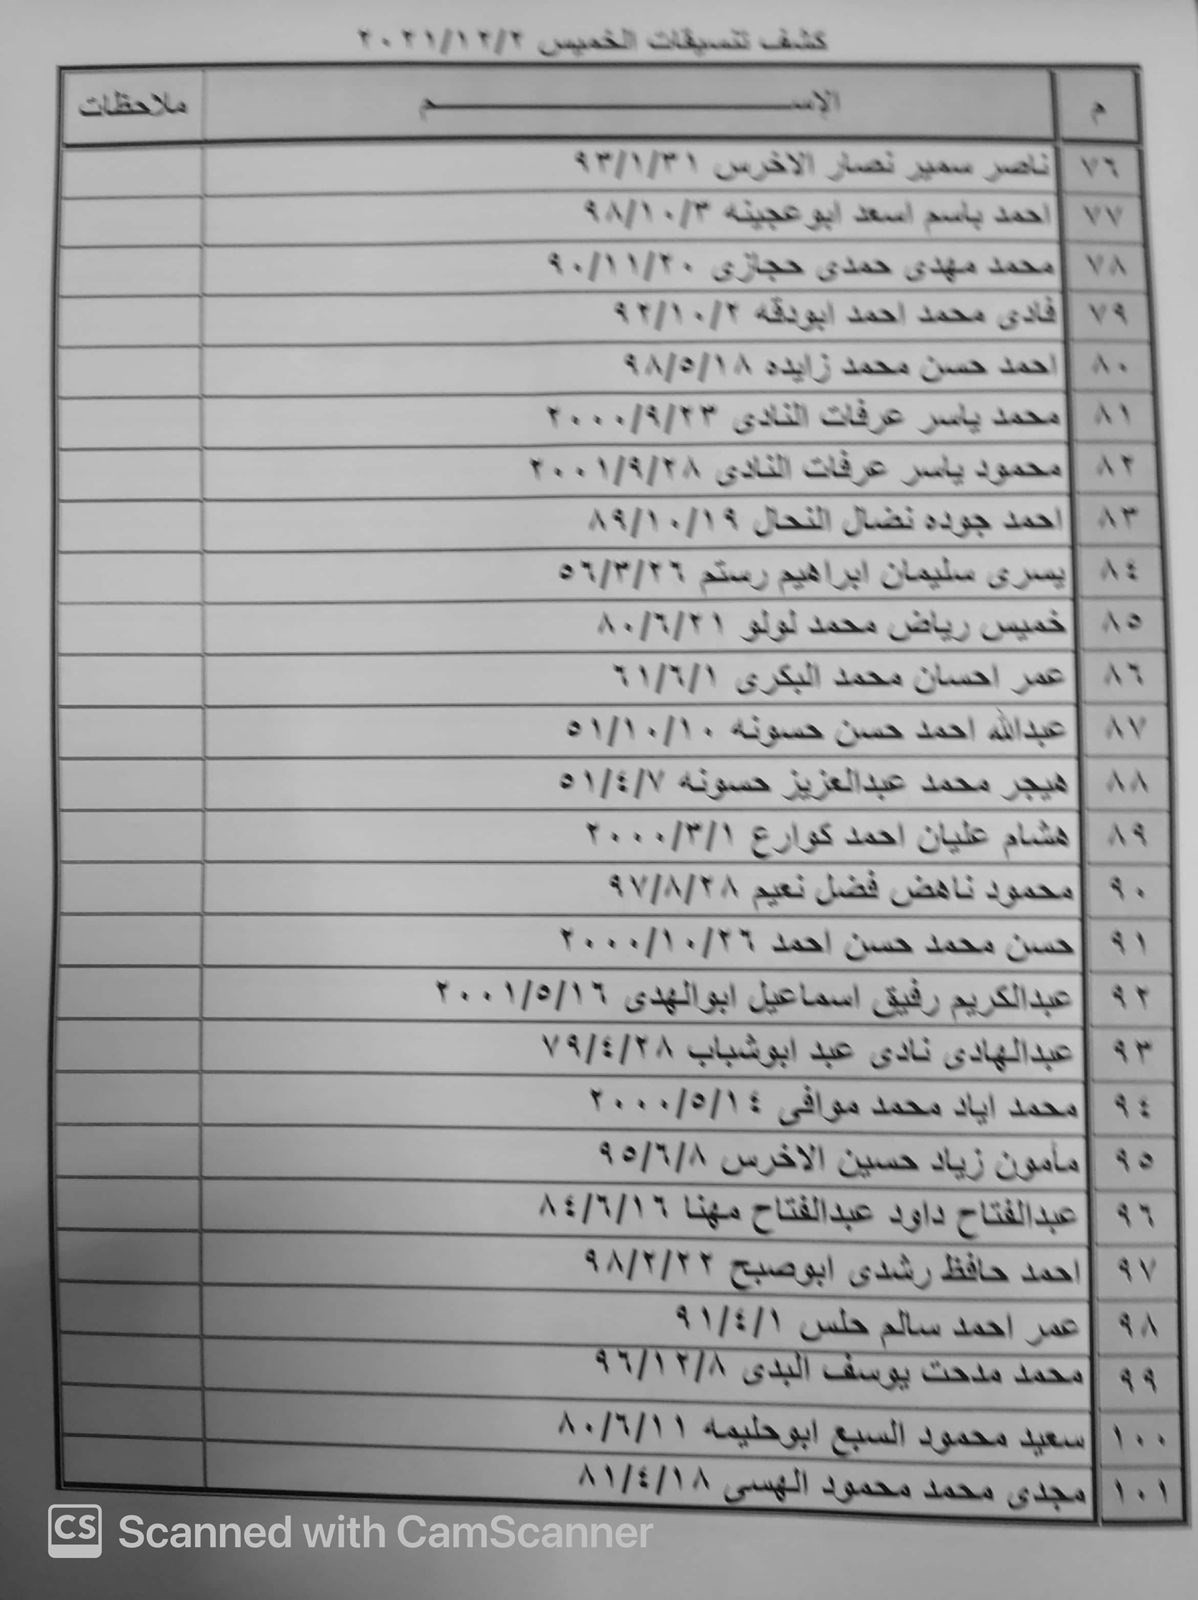 كشف تنسيقات الخميس ٢٠٢١/١٢/٢
م الاســـــــم ملاحظات
٧٦ ناصر سمير نصار الاخرس ٩٣/١/٣١
٧٧ احمد باسم اسعد ابوعجينه ٩٨/١٠/٣
٧٨ محمد مهدى حمدى حجازى ٩٠/١١/٢٠
٧٩ فادى محمد احمد ابودقه ٩٢/١٠/٢
٨٠ احمد حسن محمد زايده ٩٨/٥/١٨
٨١ محمد ياسر عرفات النادى ٢٠٠٠/٩/٢٣
٨٢ محمود ياسر عرفات النادى ٢٠٠١/٩/٢٨
٨٣ احمد جوده نضال النحال ٨٩/١٠/١٩
٨٤ يسرى سليمان ابراهيم رستم ٥٦/٣/٢٦
٨٥ خميس رياض محمد لولو ٨٠/٦/٢١
٨٦ عمر احسان محمد البكرى ٦١/٦/١
٨٧ عبدالله احمد حسن حسونه ٥١/١٠/١٠
٨٨ هيجر محمد عبدالعزيز حسونه ٥١/٤/٧
٨٩ هشام عليان احمد كوارع ٢٠٠٠/٣/١
٩٠ محمود ناهض فضل نعيم ٩٧/٨/٢٨
٩١ حسن محمد حسن احمد ٢٠٠٠/١٠/٢٦
٩٢ عبدالكريم رفيق اسماعيل ابوالهدى ٢٠٠١/٥/١٦
٩٣ عبدالهادى نادى عبد ابوشباب ٧٩/٤/٢٨
٩٤ محمد اياد محمد موافى ٢٠٠٠/٥/١٤
٩٥ مأمون زياد حسين الاخرس ٩٥/٦/٨
٩٦ عبدالفتاح داود عبدالفتاح مهنا ٨٤/٦/١٦
٩٧ احمد حافظ رشدى ابوصبح ٩٨/٢/٢٢
٩٨ عمر احمد سالم حلس ٩١/٤/١
٩٩ محمد مدحت يوسف البدى ٩٦/١٢/٨
١٠٠ سعيد محمود السبع ابوحليمه ٨٠/٦/١١
١٠١ مجدى محمد محمود الهسى ٨١/٤/١٨
CS Scanned with CamScanner